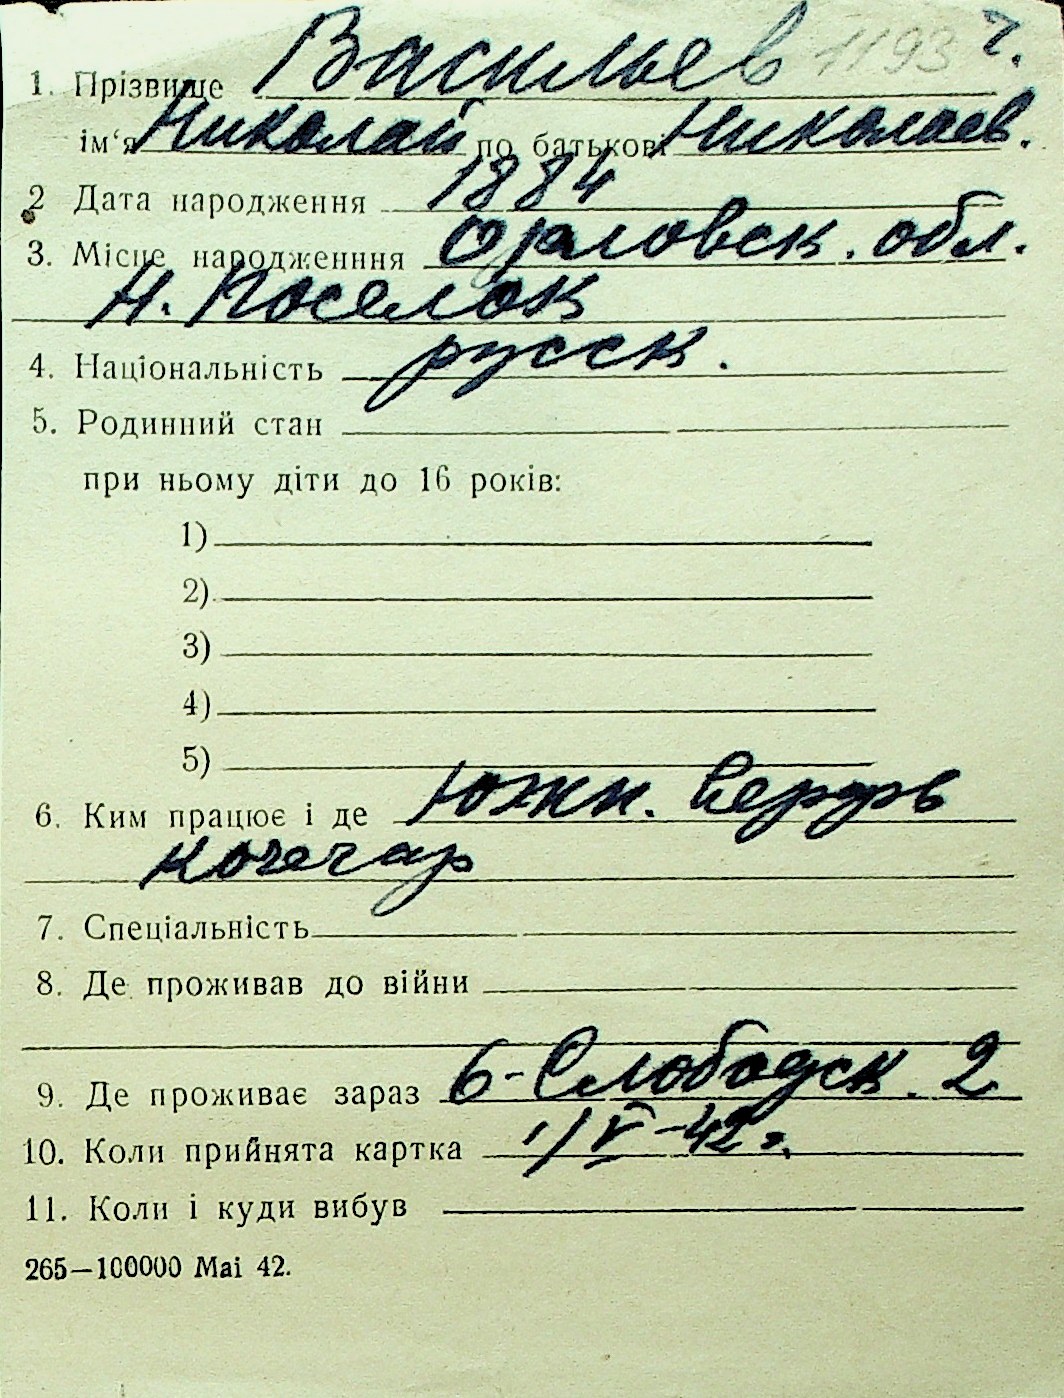 1193 г.
1. Прізвище Васильев
ім‘я Николай по батькові Николаев.
2 Дата народження 1884
3. Місце народженння Орловск. обл.
Н. Поселок
4. Національність русск.
5. Родинний стан
при ньому діти до 16 років:
1)
2)
3)
4)
5)
6. Ким працює і де Южн. Верфь
кочегар
7. Спеціальність
8. Де проживав до війни
9. Де проживає зараз 6-Слободск. 2
10. Коли прийнята картка 1/VI-42г.
11. Коли і куди вибув
265—100000 Маі 42.